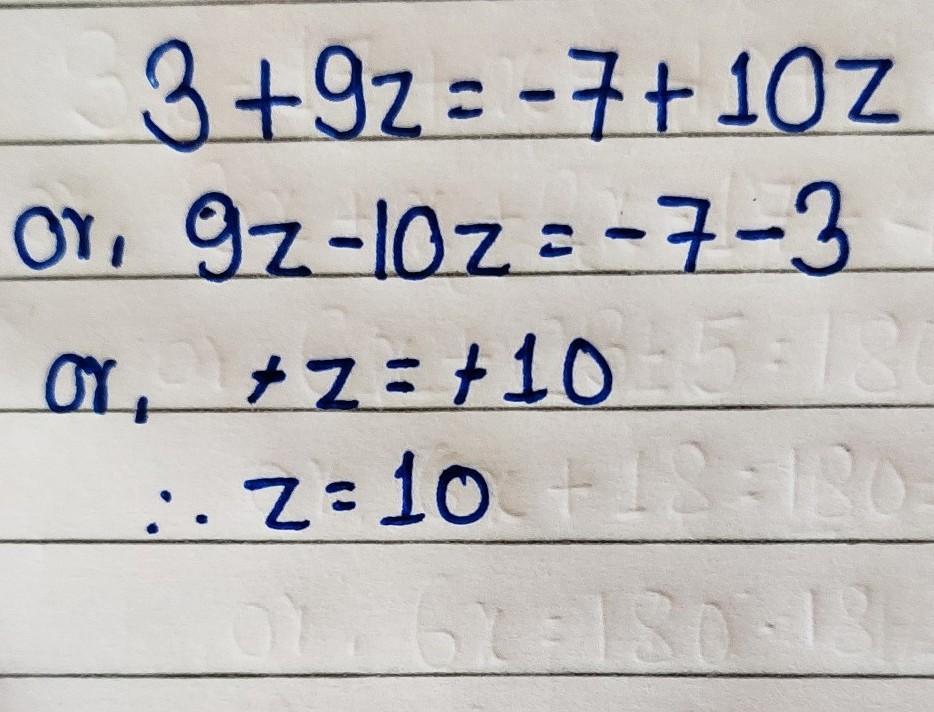 3+9z=-7+10z
or, 9z-10z=-7-3
or, -z=-10
∴ z=10